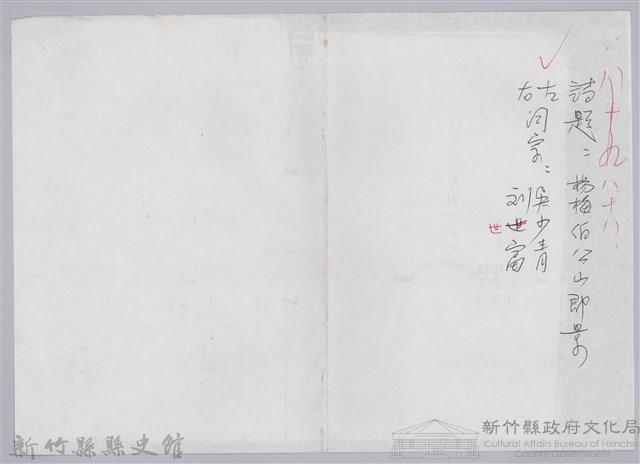 八十九 八十八
詩題：楊梅伯公山即景
左
右 詞宗：吳少青
刘世富
世
新竹縣縣史館
新竹縣政府文化局
Cultural Affairs Bureau of Hsinchu
County Government